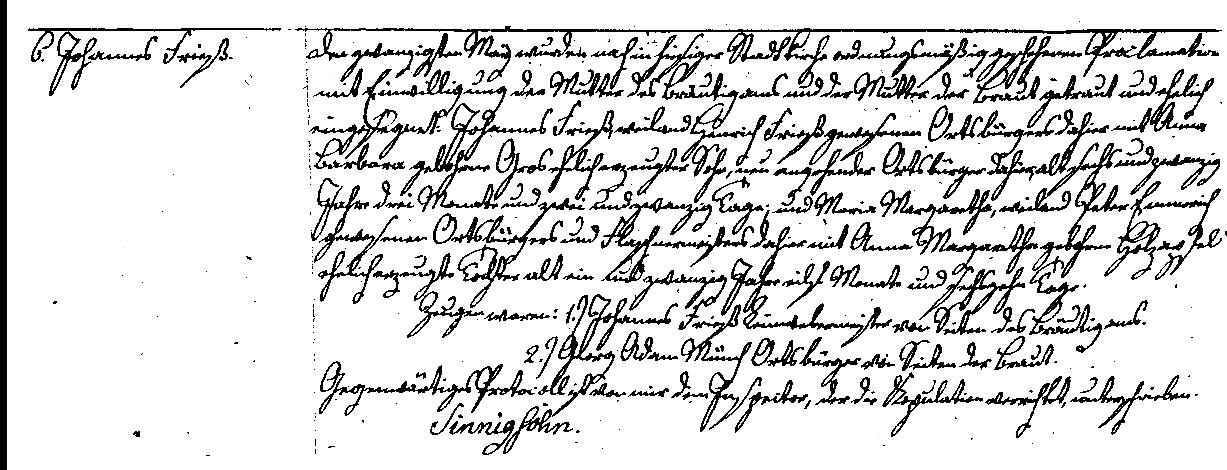 6. Johannes Frieß.
Den zwanzigsten May wurden nach in hiesiger Stadtkirche ordnungsmäßig geschehenen Proclamation
mit Einwilligung der Mutter des Bräutigams und der Mutter der Braut getraut und ehelich
eingesegnet: Johannes Frieß, weiland Henrich Frieß gewesenen Ortsbürgers dahier mit Anna
Barbara gebohrne Gros ehelich erzeugter Sohn, neu angehender Ortsbürger dahier, alt sechs und zwanzig
Jahre drei Monate und zwei und zwanzig Tage; und Maria Margaretha, weiland Peter Emmerich
gewesenen Ortsbürgers und Flaschnermeisters dahier mit Anna Margaretha gebohrne Holzapfel
ehelich erzeugte Tochter alt ein und zwanzig Jahre eilf Monate und sechszehn Tage.
Zeugen waren: 1.) Johannes Frieß Leinwebermeister von Seiten des Bräutigams.
2.) Georg Adam Münch Ortsbürger von Seiten der Braut.
Gegenwärtiges Protocoll ist von mir dem Inspector, der die Kopulation verrichtet, unterschrieben.
Sinnigsohn.